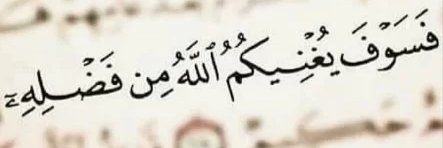 فَسَوْفَ يُغْنِيكُمُ ٱللَّهُ مِن فَضْلِهِۦ